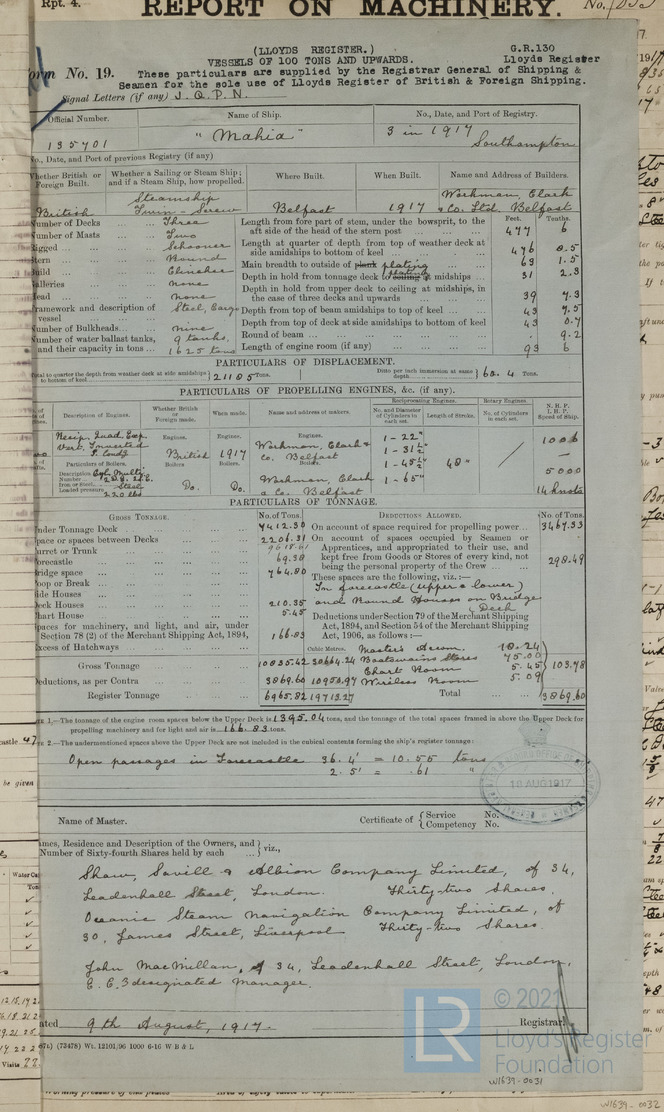 Rpt. 4.
REPORT ON MACHINERY.
No.
(LLOYDS REGISTER.)
G.R.130
VESSELS OF 100 TONS AND UPWARDS.
Lloyds Register
orm No. 19.
These particulars are supplied by the Registrar General of Shipping &
Seamen for the sole use of Lloyds Register of British & Foreign Shipping.
Signal Letters (if any) J. Q. P. N.
Official Number.
Name of Ship.
No., Date, and Port of Registry.
135701
"Mahia"
3 in 1917
Southampton
No., Date, and Port of previous Registry (if any)
Whether British or Foreign Built.
Whether a Sailing or Steam Ship; and if a Steam Ship, how propelled.
Where Built.
When Built.
Name and Address of Builders.
British
Steamship
Twin-Screw
Belfast
1917
Workman, Clark
& Co. Ltd. Belfast
Number of Decks Three
Number of Masts Two
Rigged Schooner
tern Round
Build Clincher
alleries none
ead None
ramework and description of vessel Steel, Cargo
Number of Bulkheads nine
Number of water ballast tanks, and their capacity in tons 9 tanks. 1625 tons
Feet. Tenths.
Length from fore part of stem, under the bowsprit, to the aft side of the head of the stern post 477 6
Length at quarter of depth from top of weather deck at side amidships to bottom of keel 476 8.5
Main breadth to outside of plank plating 63 1.5
Depth in hold from tonnage deck to ceiling at midships 31 2.3
Depth in hold from upper deck to ceiling at midships, in the case of three decks and upwards 39 7.3
Depth from top of beam amidships to top of keel 43 7.5
Depth from top of deck at side amidships to bottom of keel 43 0.7
Round of beam 9.2
Length of engine room (if any) 93 6
PARTICULARS OF DISPLACEMENT.
Total to quarter the depth from weather deck at side amidships to bottom of keel 21185 Tons.
Ditto per inch immersion at same depth 60.4 Tons.
PARTICULARS OF PROPELLING ENGINES, &c. (if any).
Description of Engines.
Whether British or Foreign made.
When made.
Name and address of makers.
Reciprocating Engines.
No. and Diameter of Cylinders in each set.
Length of Stroke.
Rotary Engines.
No. of Cylinders in each set.
N. H. P.
I. H. P.
Speed of Ship.
Recip. Quad. Exp.
Vert. Inverted
Engines.
British
Engines.
1917
Engines.
Workman, Clark &
Co. Belfast
1 - 22"
1 - 31½"
1 - 45½"
1 - 65"
48"
1006
5000
14 knots
Particulars of Boilers.
Description
Number
Iron or Steel Steel
Loaded pressure 220 lbs
Boilers
Do.
Boilers
Do.
Boilers.
Workman, Clark
& Co. Belfast
PARTICULARS OF TONNAGE.
GROSS TONNAGE.
No. of Tons.
DEDUCTIONS ALLOWED.
No. of Tons.
Under Tonnage Deck 7412.30
Space or spaces between Decks 2206.31
9618.61
urret or Trunk
orecastle 69.38
Bridge space 764.80
oop or Break
ide Houses
Deck Houses 210.35
hart House 5.45
paces for machinery, and light, and air, under Section 78 (2) of the Merchant Shipping Act, 1894, 166.83
Excess of Hatchways
Gross Tonnage 10835.42 30664.24
Deductions, as per Contra 3869.60 10950.97
Register Tonnage 6965.82 19713.27
On account of space required for propelling power 3467.33
On account of spaces occupied by Seamen or Apprentices, and appropriated to their use, and kept free from Goods or Stores of every kind, not being the personal property of the Crew 298.49
These spaces are the following, viz.:—
In forecastle (upper & lower)
and Round Houses on Bridge
Deck
Deductions under Section 79 of the Merchant Shipping Act, 1894, and Section 54 of the Merchant Shipping Act, 1906, as follows:—
Cubic Metres.
Master's Accom. 18.24
Boatswains Stores 75.00
Chart Room 5.45
Wireless Room 5.09
103.78
Total 3869.60
TE 1.—The tonnage of the engine room spaces below the Upper Deck is 1395.04 tons, and the tonnage of the total spaces framed in above the Upper Deck for propelling machinery and for light and air is 166.83 tons.
TE 2.—The undermentioned spaces above the Upper Deck are not included in the cubical contents forming the ship's register tonnage:
Open passages in Forecastle 36.4' = 10.55 tons
2.5' = .61 "
10 AUG 1917
Name of Master.
Certificate of
Service No.
Competency No.
ames, Residence and Description of the Owners, and Number of Sixty-fourth Shares held by each viz.,
Shaw, Savill & Albion Company Limited, of 34,
Leadenhall Street, London. Thirty-two Shares.
Oceanic Steam Navigation Company Limited, of
30, James Street, Liverpool Thirty-two Shares.
John MacMillan, of 34, Leadenhall Street, London,
E.C.3 designated Manager.
ated 9th August, 1917.
Registrar.
76) (73478) Wt. 12101/96 1000 6-16 W B & L
© 2021
LR
Lloyd's Register
Foundation
W1639-0031
W1639-0032